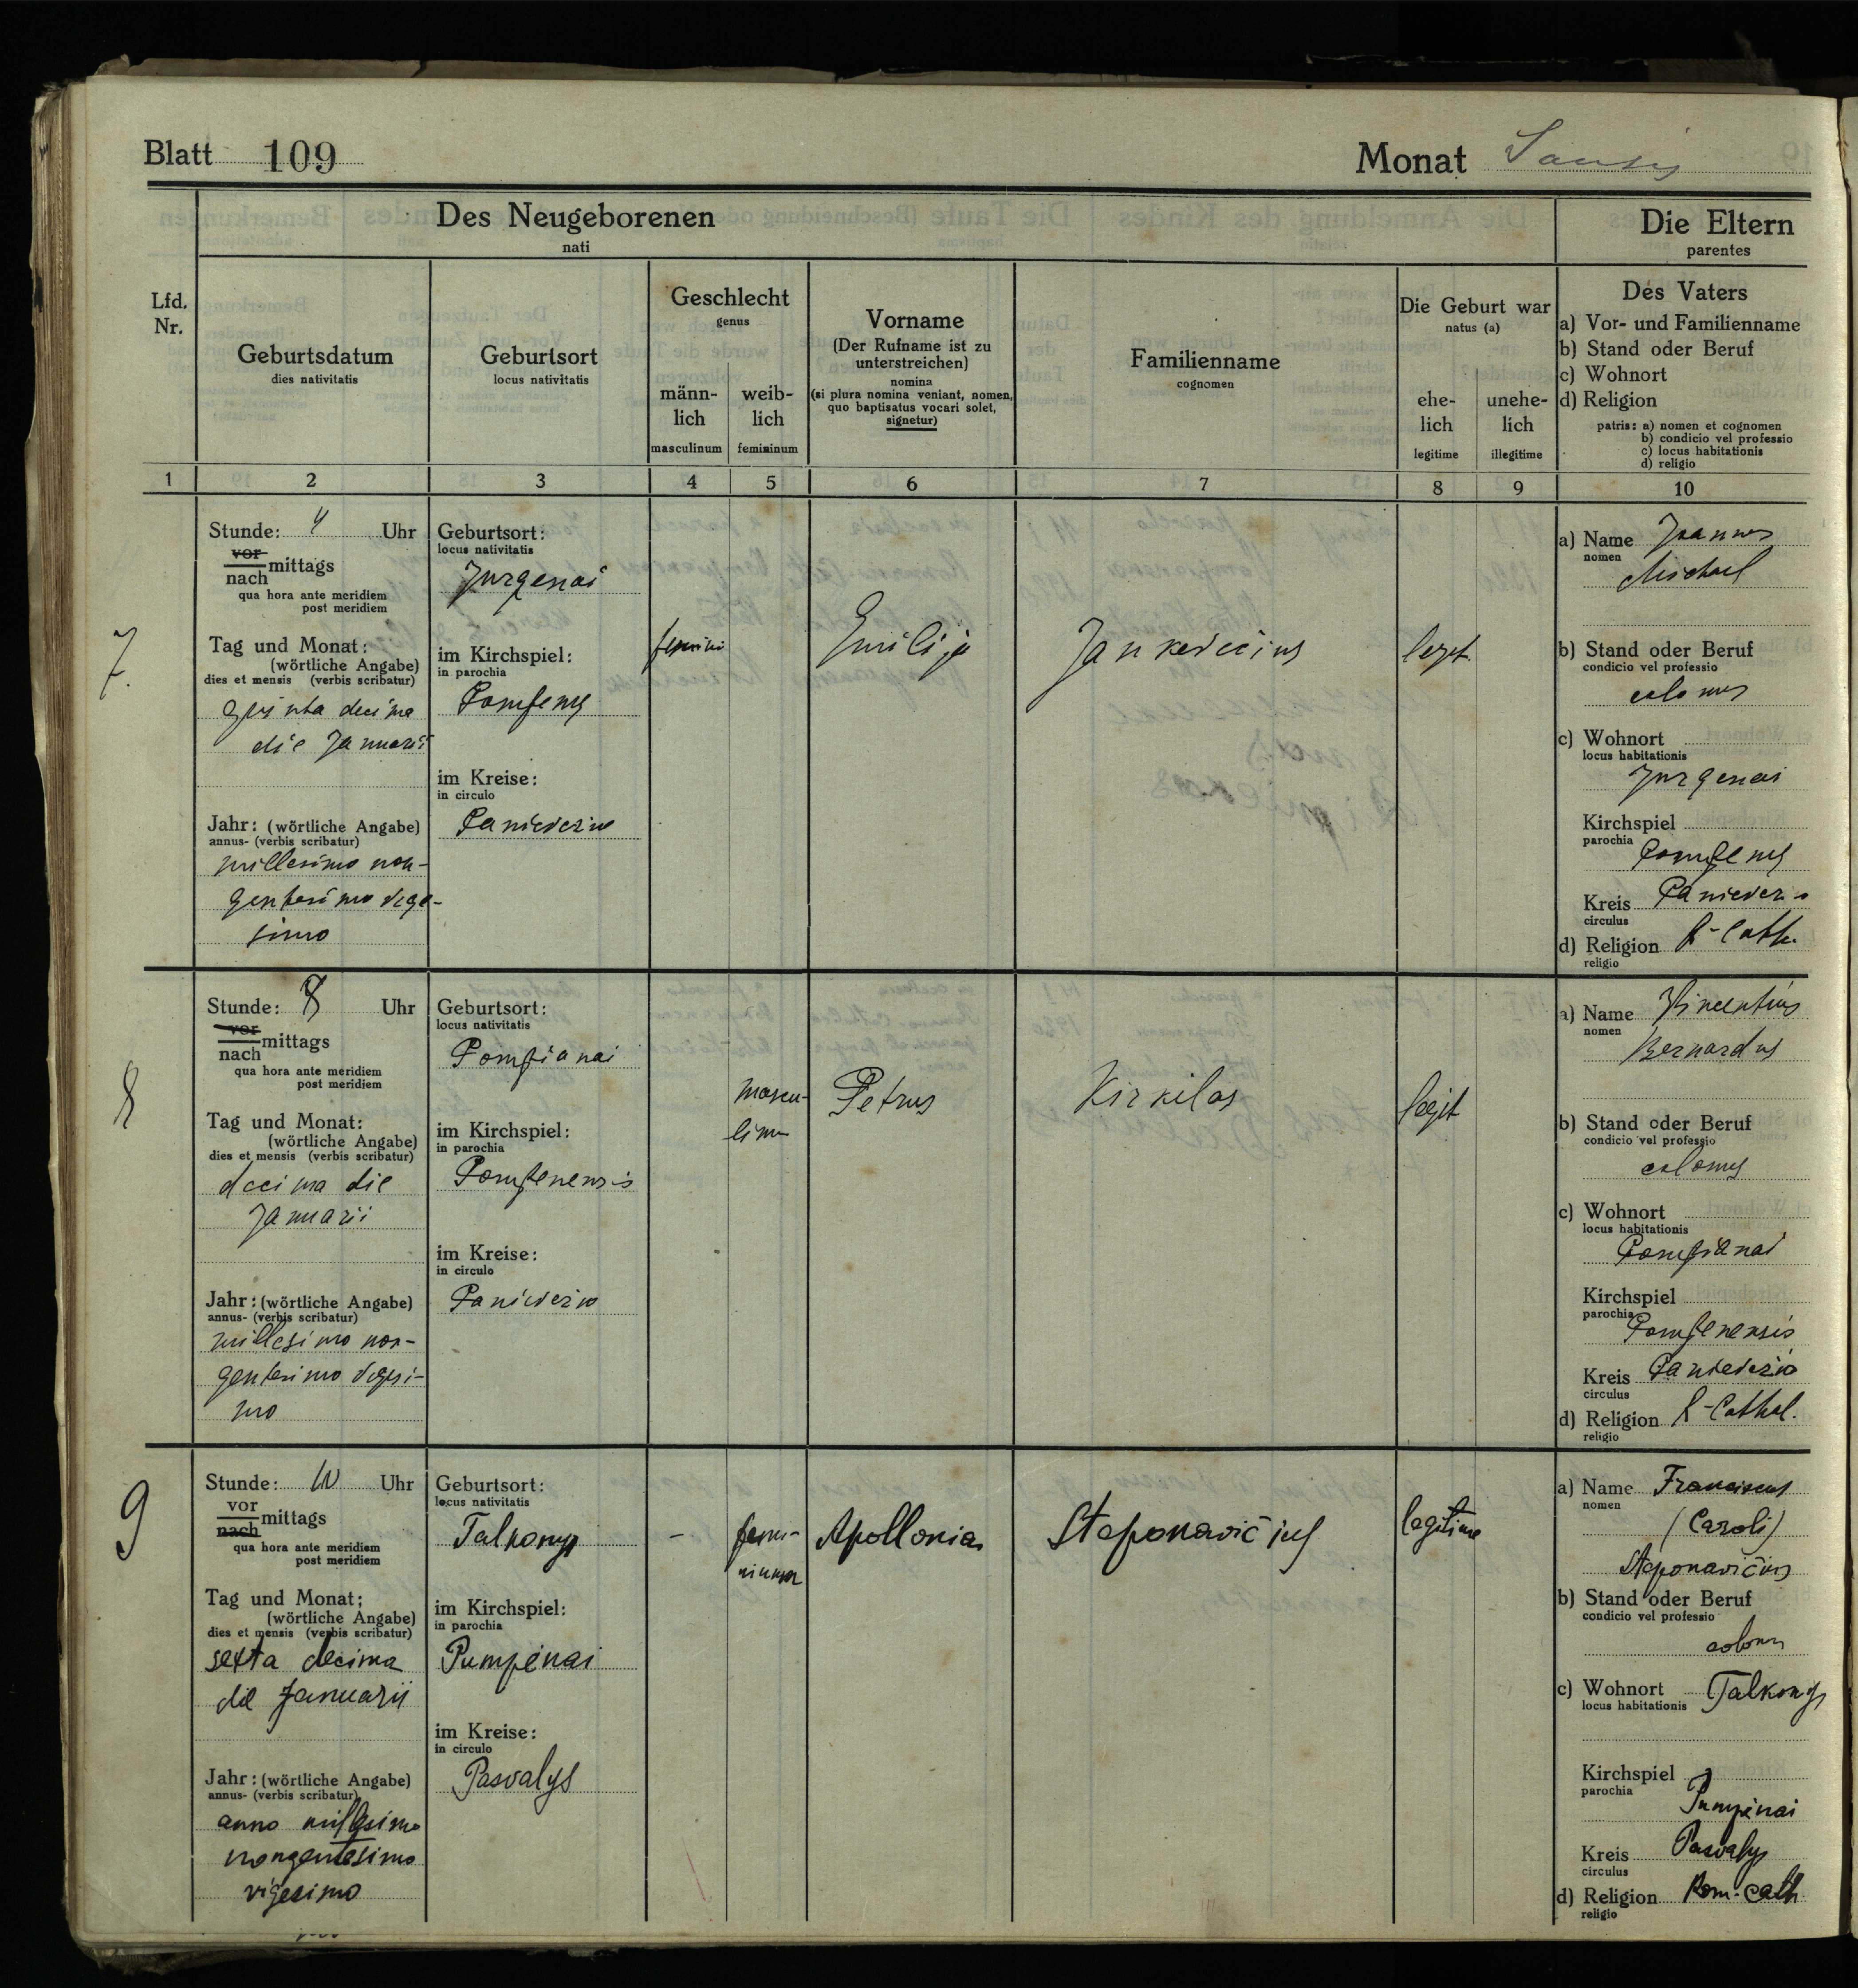 Blatt 109
Monat Sausis
Des Neugeborenen
nati
Die Eltern
parentes
Lfd.
Nr.
Geburtsdatum
dies nativitatis
Geburtsort
locus nativitatis
Geschlecht
genus
männ-
lich
masculinum
weib-
lich
femininum
Vorname
(Der Rufname ist zu
unterstreichen)
nomina
(si plura nomina veniant, nomen,
quo baptisatus vocari solet,
signetur)
Familienname
cognomen
Die Geburt war
natus (a)
ehe-
lich
legitime
unehe-
lich
illegitime
Des Vaters
a) Vor- und Familienname
b) Stand oder Beruf
c) Wohnort
d) Religion
patris: a) nomen et cognomen
b) condicio vel professio
c) locus habitationis
d) religio
1 2 3 4 5 6 7 8 9 10
7.
Stunde: 4 Uhr
vor
nach mittags
qua hora ante meridiem
post meridiem
Tag und Monat:
(wörtliche Angabe)
dies et mensis (verbis scribatur)
quinta decima
die Januarii
Jahr: (wörtliche Angabe)
annus- (verbis scribatur)
millesimo non-
gentesimo vige-
simo
Geburtsort:
locus nativitatis
Jurgenai
im Kirchspiel:
in parochia
Pompeny
im Kreise:
in circulo
femini
Emilija
Jankevicius
legit.
a) Name Joannes
nomen
Michael
b) Stand oder Beruf
condicio vel professio
colonus
c) Wohnort
locus habitationis
Jurgenai
Kirchspiel
parochia
Pompeny
Kreis
circulus
d) Religion R-Cath.
religio
8
Stunde: 8 Uhr
vor
nach mittags
qua hora ante meridiem
post meridiem
Tag und Monat:
(wörtliche Angabe)
dies et mensis (verbis scribatur)
decima die
Januarii
Jahr: (wörtliche Angabe)
annus- (verbis scribatur)
millesimo non-
gentesimo vigesi-
mo
Geburtsort:
locus nativitatis
Pompianai
im Kirchspiel:
in parochia
Pompenensis
im Kreise:
in circulo
Paniewezio
mascu-
linum
Petrus
Kirkilas
legit
a) Name Vincentius
nomen
Bernardus
b) Stand oder Beruf
condicio vel professio
colonus
c) Wohnort
locus habitationis
Pompianai
Kirchspiel
parochia
Pompenensis
Kreis Paniewezio
circulus
d) Religion R-Cathol.
religio
9
Stunde: 10 Uhr
vor
nach mittags
qua hora ante meridiem
post meridiem
Tag und Monat:
(wörtliche Angabe)
dies et mensis (verbis scribatur)
sexta decima
die Januarii
Jahr: (wörtliche Angabe)
annus- (verbis scribatur)
anno millesimo
nongentesimo
vigesimo
Geburtsort:
locus nativitatis
Talkonys
im Kirchspiel:
in parochia
Pumpėnai
im Kreise:
in circulo
Pasvalys
-
femi-
ninum
Apollonia
Steponavičius
legitime
a) Name Franciscus
nomen
(Caroli)
Steponavičius
b) Stand oder Beruf
condicio vel professio
colonus
c) Wohnort Talkonys
locus habitationis
Kirchspiel
parochia
Pumpėnai
Kreis Pasvalys
circulus
d) Religion Rom-Cath
religio